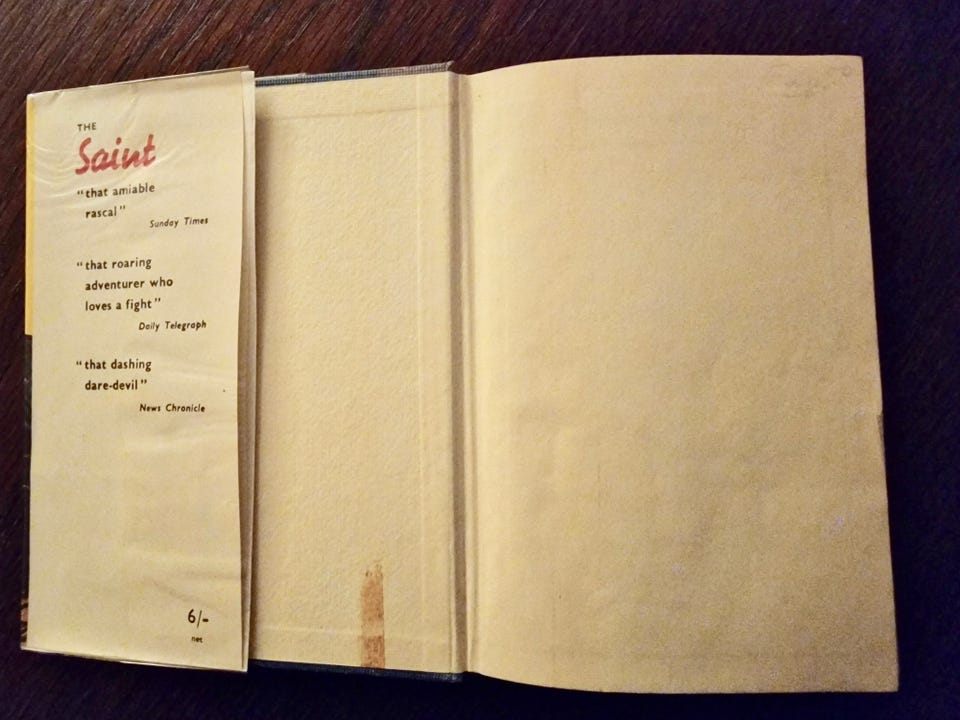 THE
Saint
"that amiable
rascal"
Sunday Times
"that roaring
adventurer who
loves a fight"
Daily Telegraph
"that dashing
dare-devil"
News Chronicle
6/-
net